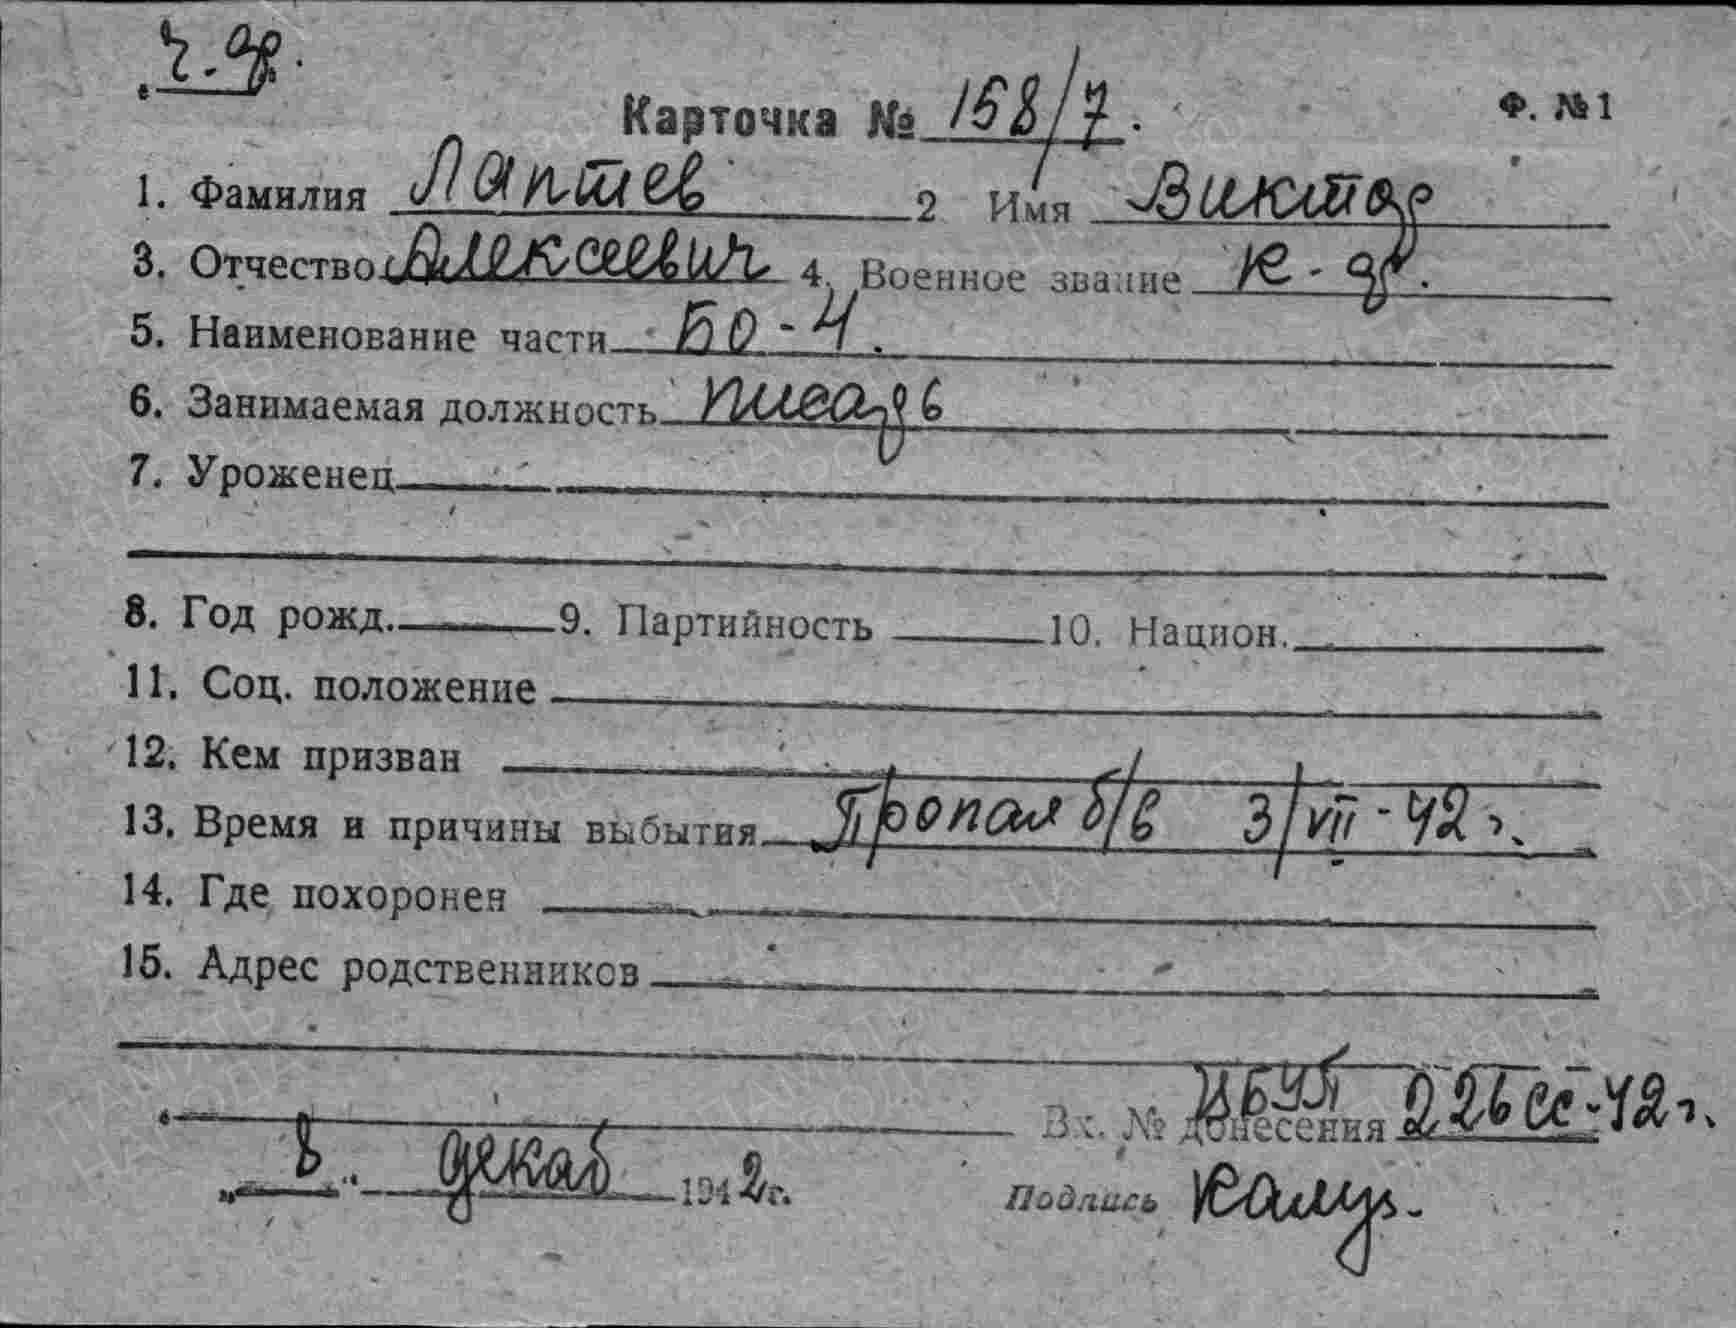 ч. ф.
Карточка № 158/7. Ф. №1
1. Фамилия Лаптев 2 Имя Виктор
3. Отчество Алексеевич 4. Военное звание к-ф.
5. Наименование части БО-4.
6. Занимаемая должность писарь
7. Уроженец
8. Год рожд. 9. Партийность 10. Национ.
11. Соц. положение
12. Кем призван
13. Время и причины выбытия Пропал б/в 3/VII-42 г.
14. Где похоронен
15. Адрес родственников
Вх. № донесения 226сс-42 г.
„8“ декаб 1942 г. Подпись